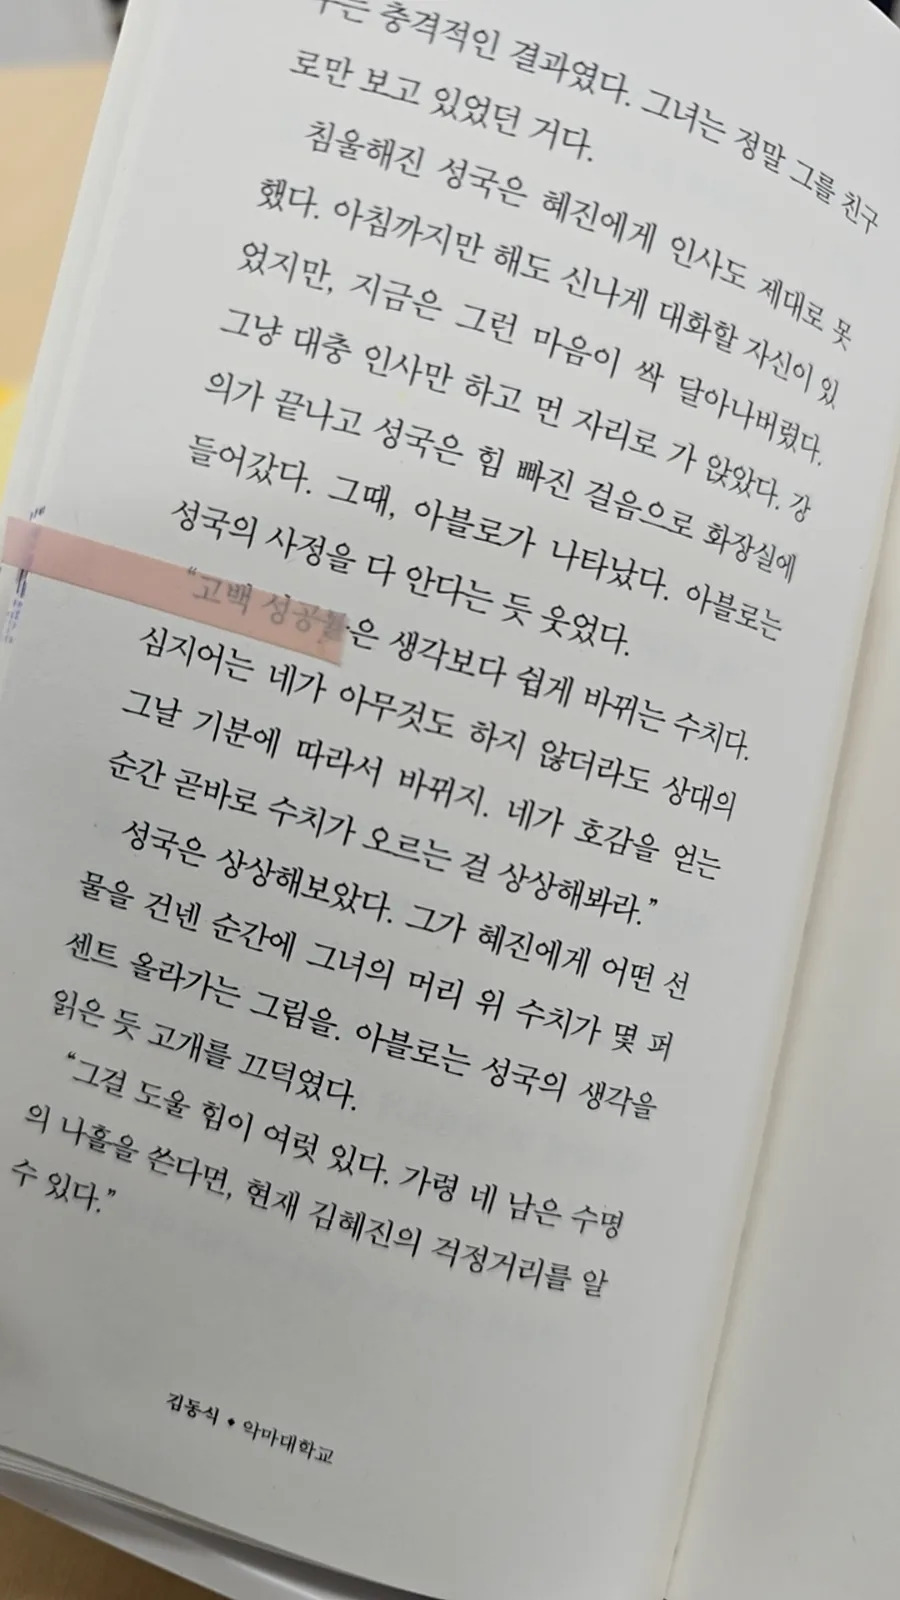 충격적인 결과였다. 그녀는 정말 그를 친구
로만 보고 있었던 거다.
침울해진 성국은 혜진에게 인사도 제대로 못
했다. 아침까지만 해도 신나게 대화할 자신이 있
었지만, 지금은 그런 마음이 싹 달아나버렸다.
그냥 대충 인사만 하고 먼 자리로 가 앉았다. 강
의가 끝나고 성국은 힘 빠진 걸음으로 화장실에
들어갔다. 그때, 아블로가 나타났다. 아블로는
성국의 사정을 다 안다는 듯 웃었다.
“고백 성공률은 생각보다 쉽게 바뀌는 수치다.
심지어는 네가 아무것도 하지 않더라도 상대의
그날 기분에 따라서 바뀌지. 네가 호감을 얻는
순간 곧바로 수치가 오르는 걸 상상해봐라.”
성국은 상상해보았다. 그가 혜진에게 어떤 선
물을 건넨 순간에 그녀의 머리 위 수치가 몇 퍼
센트 올라가는 그림을. 아블로는 성국의 생각을
읽은 듯 고개를 끄덕였다.
“그걸 도울 힘이 여럿 있다. 가령 네 남은 수명
의 나흘을 쓴다면, 현재 김혜진의 걱정거리를 알
수 있다.”
김동식 ◆ 악마대학교